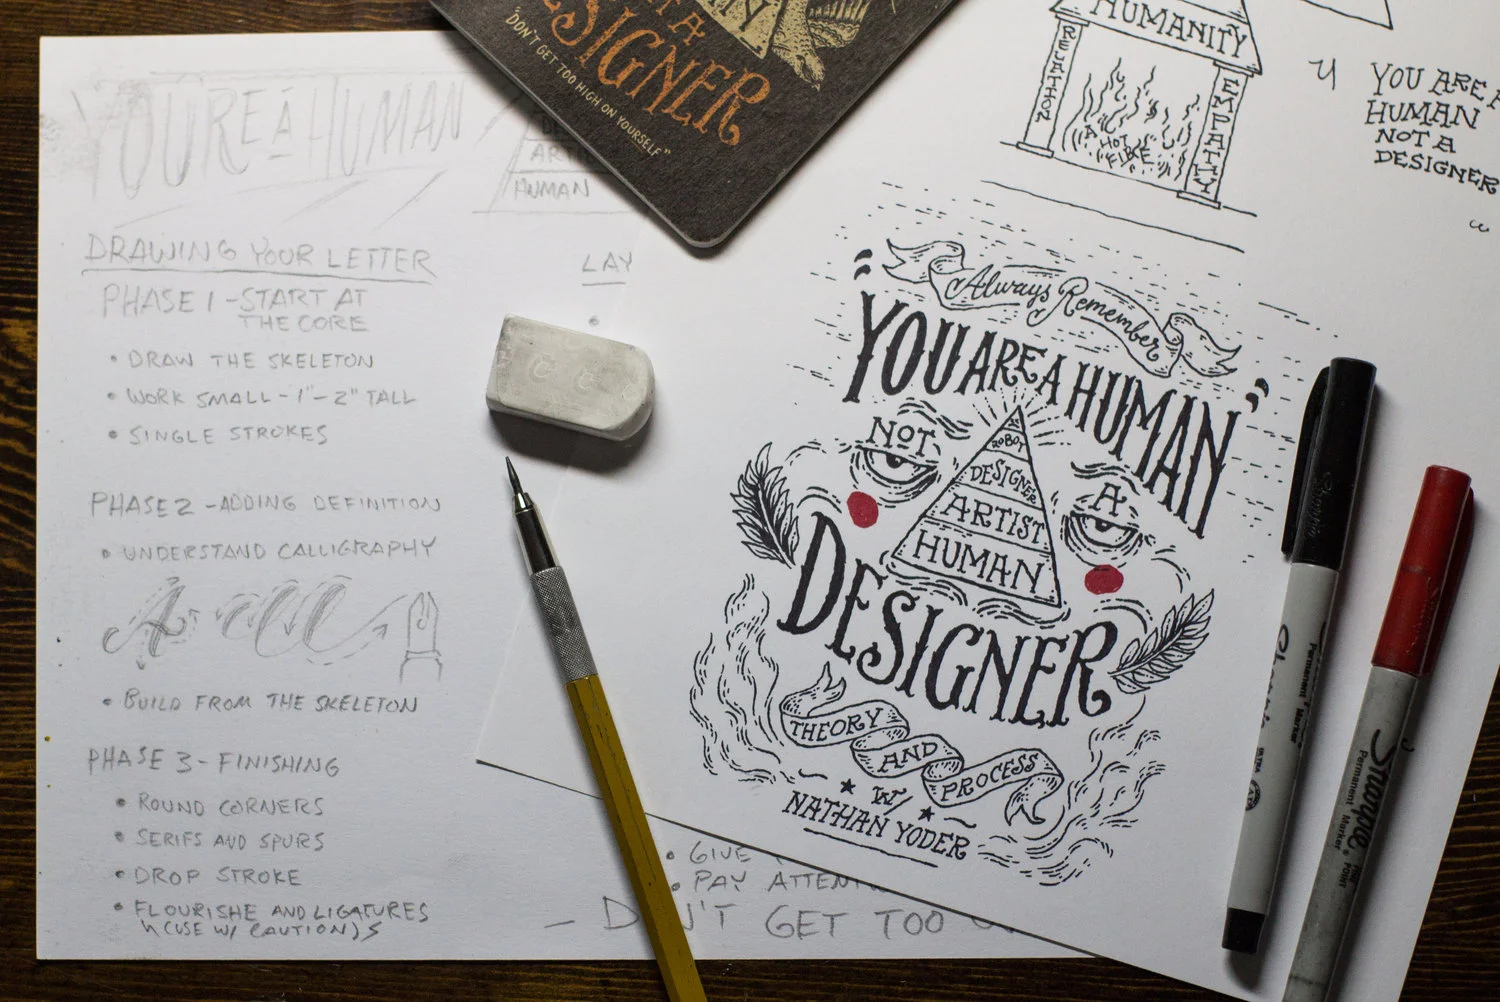 YOU'RE A HUMAN
ARTI
HUMAN
DRAWING YOUR LETTER
PHASE 1 - START AT
THE CORE
• DRAW THE SKELETON
• WORK SMALL - 1"- 2" TALL
• SINGLE STROKES
PHASE 2 - ADDING DEFINITION
• UNDERSTAND CALLIGRAPHY
A
• BUILD FROM THE SKELETON
PHASE 3 - FINISHING
• ROUND CORNERS
• SERIFS AND SPURS
• DROP STROKE
• FLOURISHE AND LIGATURES
(USE W/ CAUTION)
LAY
• GIVE
• PAY ATTENT
- DON'T GET TOO
DESIGNER
"DON'T GET TOO HIGH ON YOURSELF"
HUMANITY
RELATION
EMPATY
A HOT
FIRE
YOU ARE A
HUMAN
NOT A
DESIGNER
Always Remember
"YOU ARE A HUMAN"
NOT
A
ROBOT
DESIGNER
ARTIST
HUMAN
DESIGNER
THEORY
AND
PROCESS
W/
NATHAN YODER
Permanent Marker
Sharpie
Permanent Marker
FINE POINT